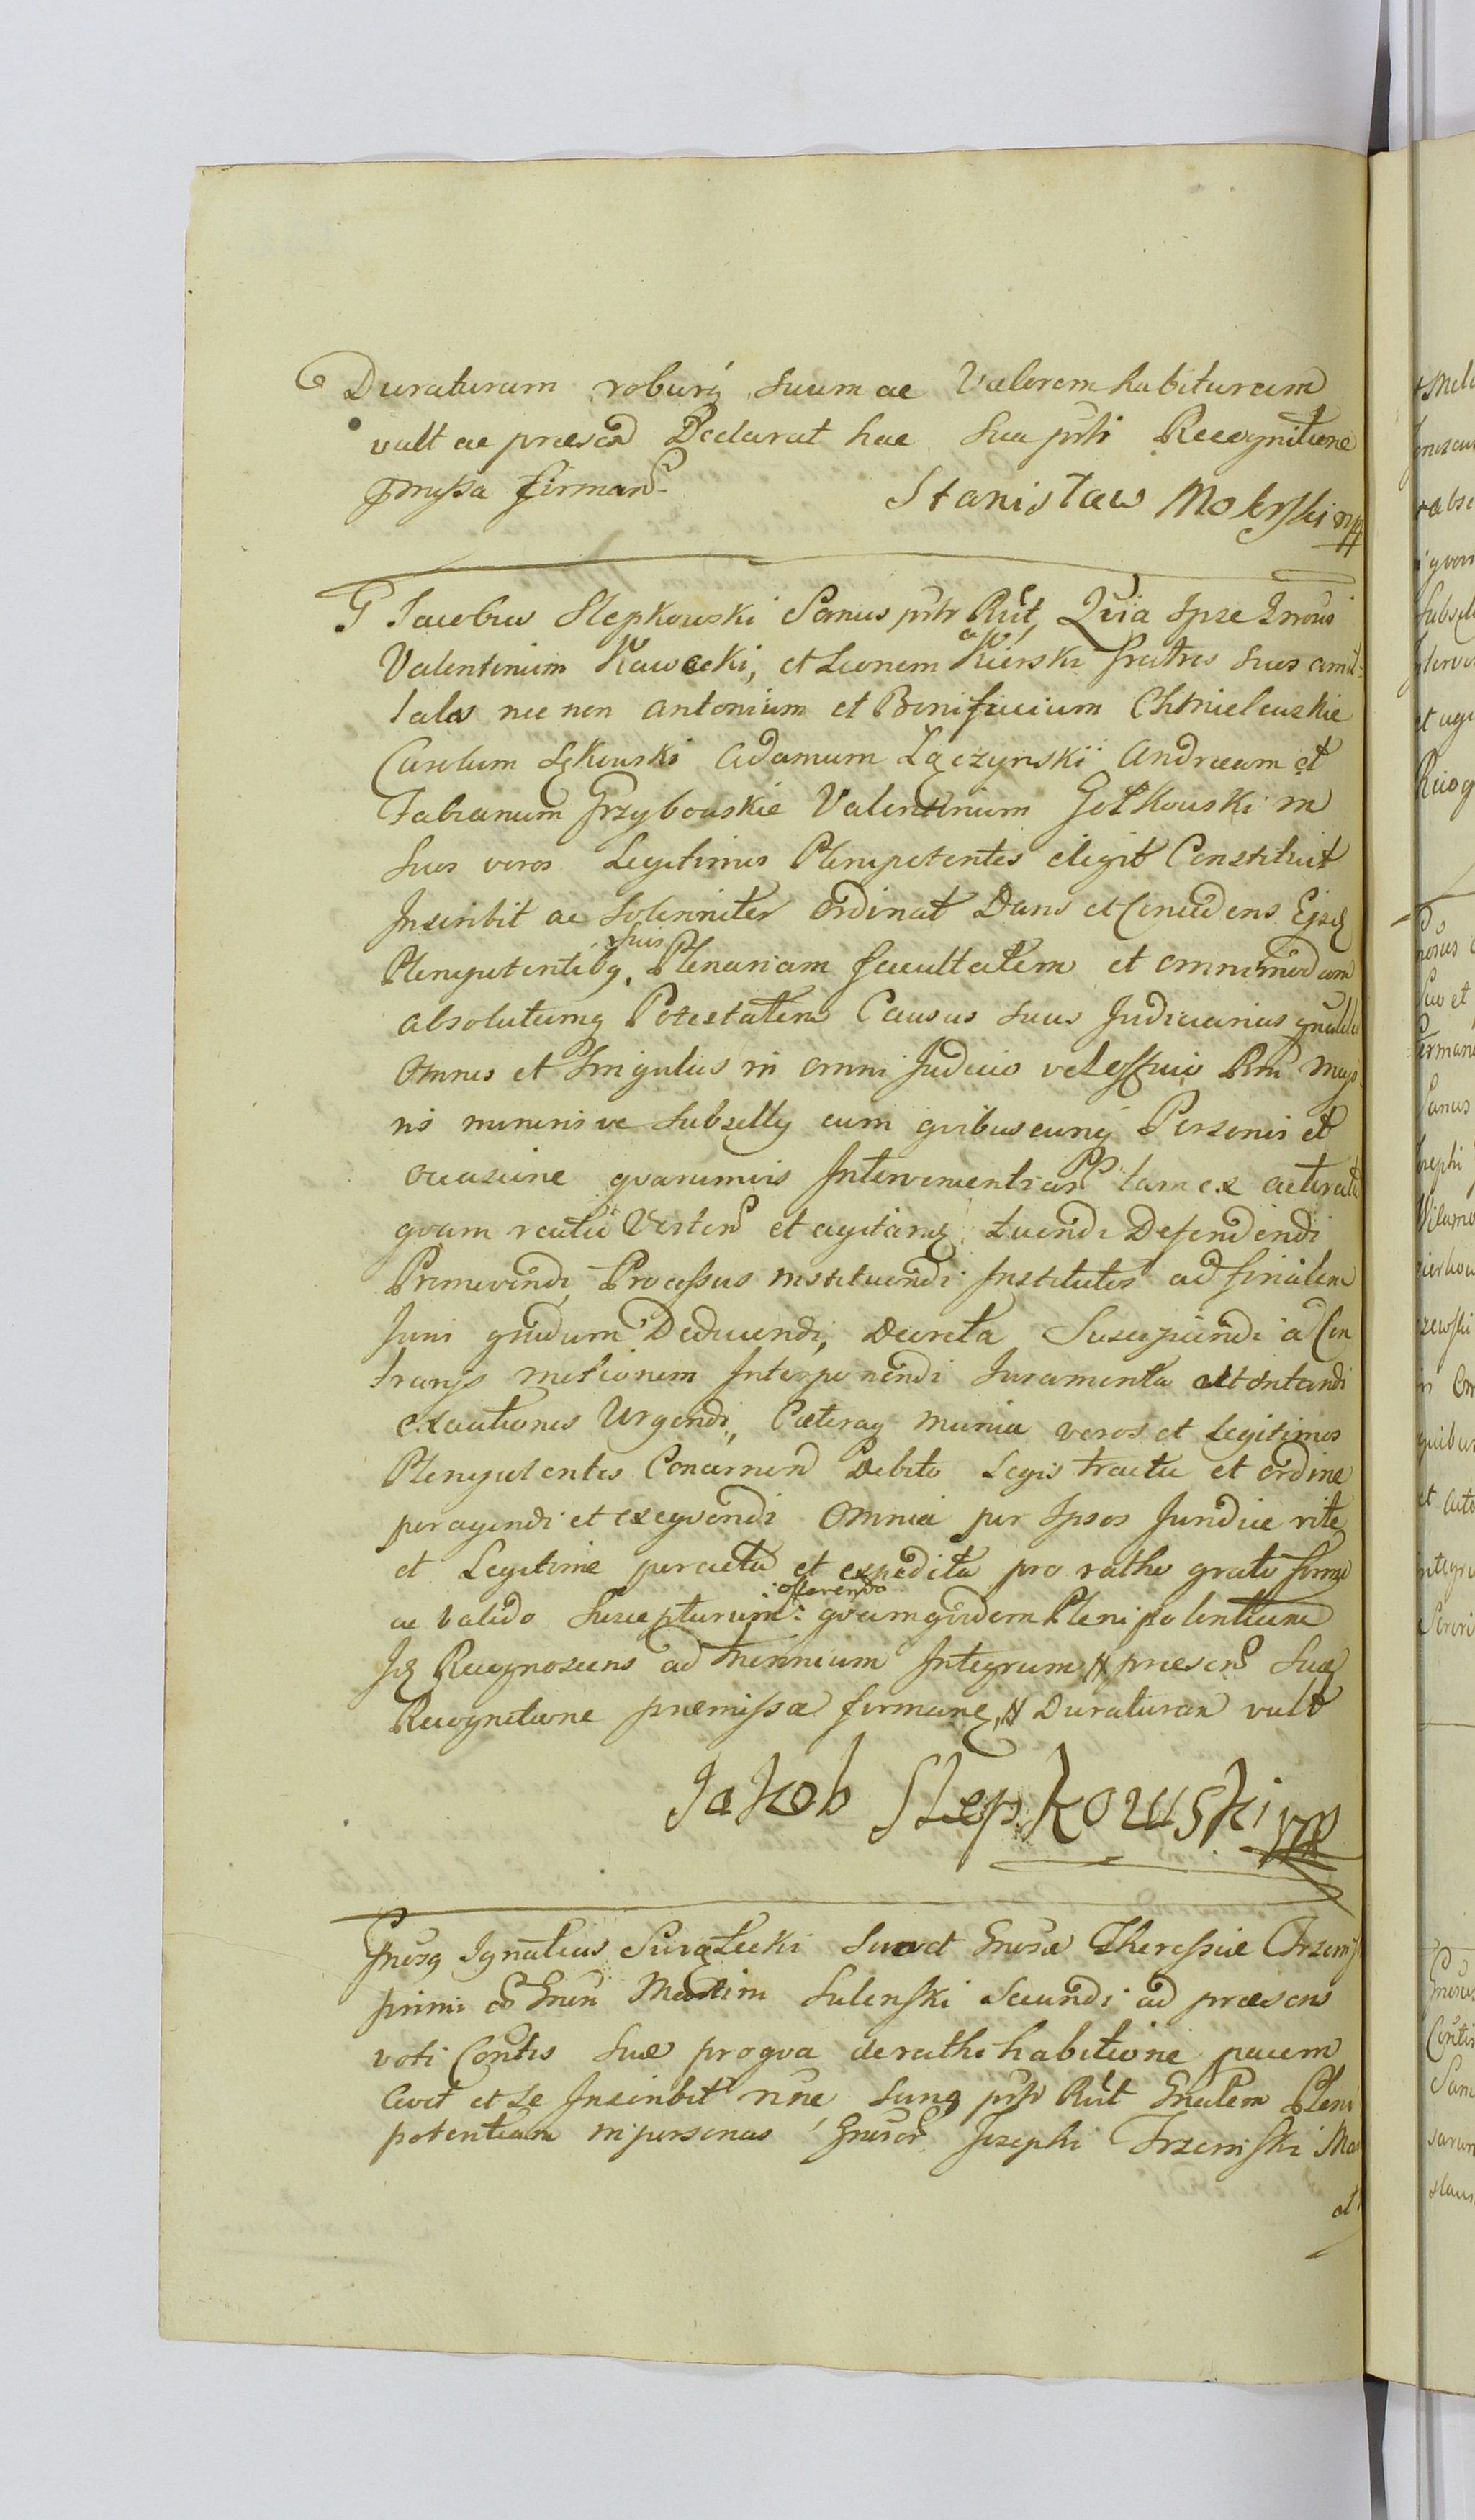 Duraturam roburq suum ac Valorem habituram
vult ac præsen Declarat hac sua pnti Recognitione
pmyssa firman
Stanisław Mokrski mp
G Jacobus Slepkowski Sanus pntr Rct, Quia Ipse Gnosos
Valentinum Kawecki, et Leonem Kierski fratres suos amit
tales nec non Antonium et Bonifacium Chmielewskie
Carolum Łękowski Adamum Łączynski Andræam et
Fabianum Grzybowskie Valentinum Gołkowski in
suos veros Legitimos Plenipotentes eligit Constituit
Inscribit ac Solenniter Ordinat Dans et Concedens Ejsd
Plenipotentibq suis Plenariam facultatem et omnimodam
absolutamq Potestatem Causas suas Judiciarias gnales
Omnes et Singulas in omni Judicio vel officio Rni Majo
ris minoris ve Subselly cum quibuscunq Personis et
occasione quarumvis Intervenientiar tam ex actoratu
quam reatu Verten et agitanq tuendi Defendendi
Promovendi, Processus instituendi Institutos ad finalem
Juris gradum Deducendi, Decreta Suscipiendi a Con
tranys motionem Interponendi Juramenta attentandi
exequtiones Urgendi, Cæteraq munia veros et Legitimos
Plenipotentes Concernen Debito Legis tractu et ordine
peragendi et exequendi Omnia per Ipsos Juridice rite
et Legitime peracta et expedita pro ratho grato firmo
ac valido Suscepturum: offerendo quamquidem Plenipotentiam
Id Recognoscens ad triennium Integrum # præsen Sua
Recognitione præmissa firmanq, # Duraturam vult
Jakob Slepkowski mp
Gnosq Ignatius Swiątecki Suo et Gnosæ Theressiæ Trzcinsk
primi Gnsi Martini Sulenski Secundi ad præsens
voti Contis suæ proqua de rathi habitione pacem
Cavet et se Inscribit nne Sanq pntr Rct Gnalem Pleni
potentiam in personas Gnosor Josephi Trzcinski Ma